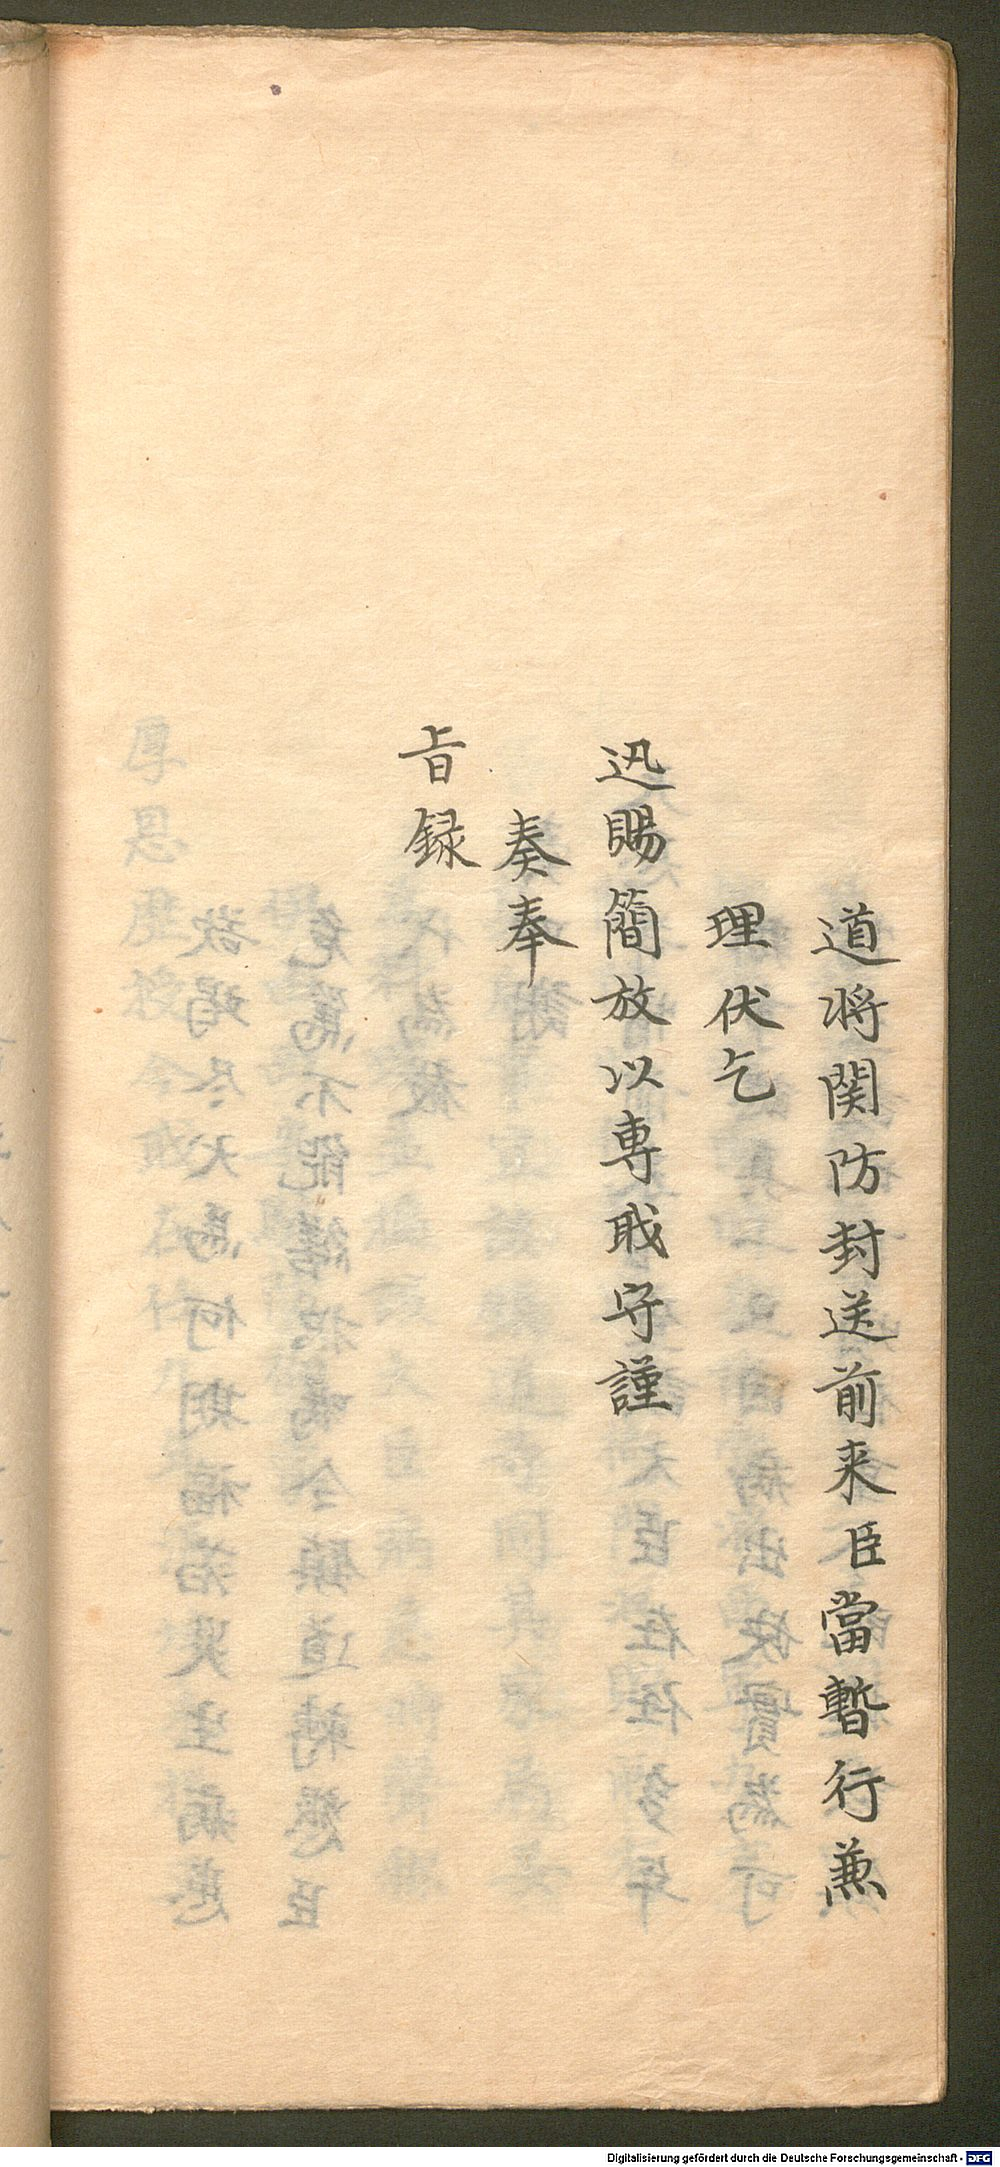 道将関防封送前来臣當暫行兼
理伏乞
迅賜簡放以專戝守謹
奏奉
旨録
Digitalisierung gefördert durch die Deutsche Forschungsgemeinschaft - DFG